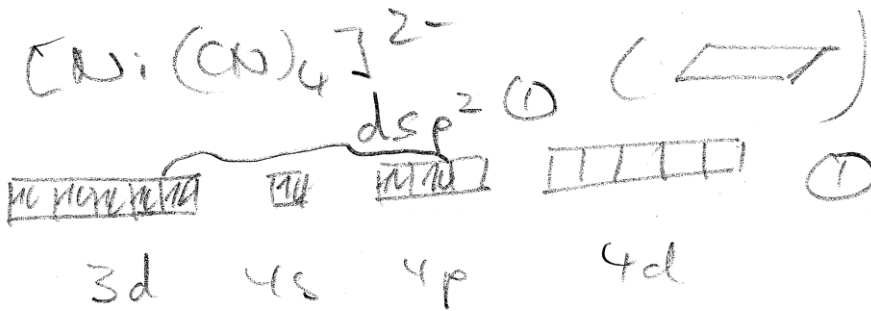 [Ni(CN)₄]²⁻
dsp² ①
①
3d 4s 4p 4d